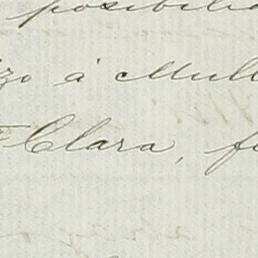 posibilid
zo á Mull
Clara, f